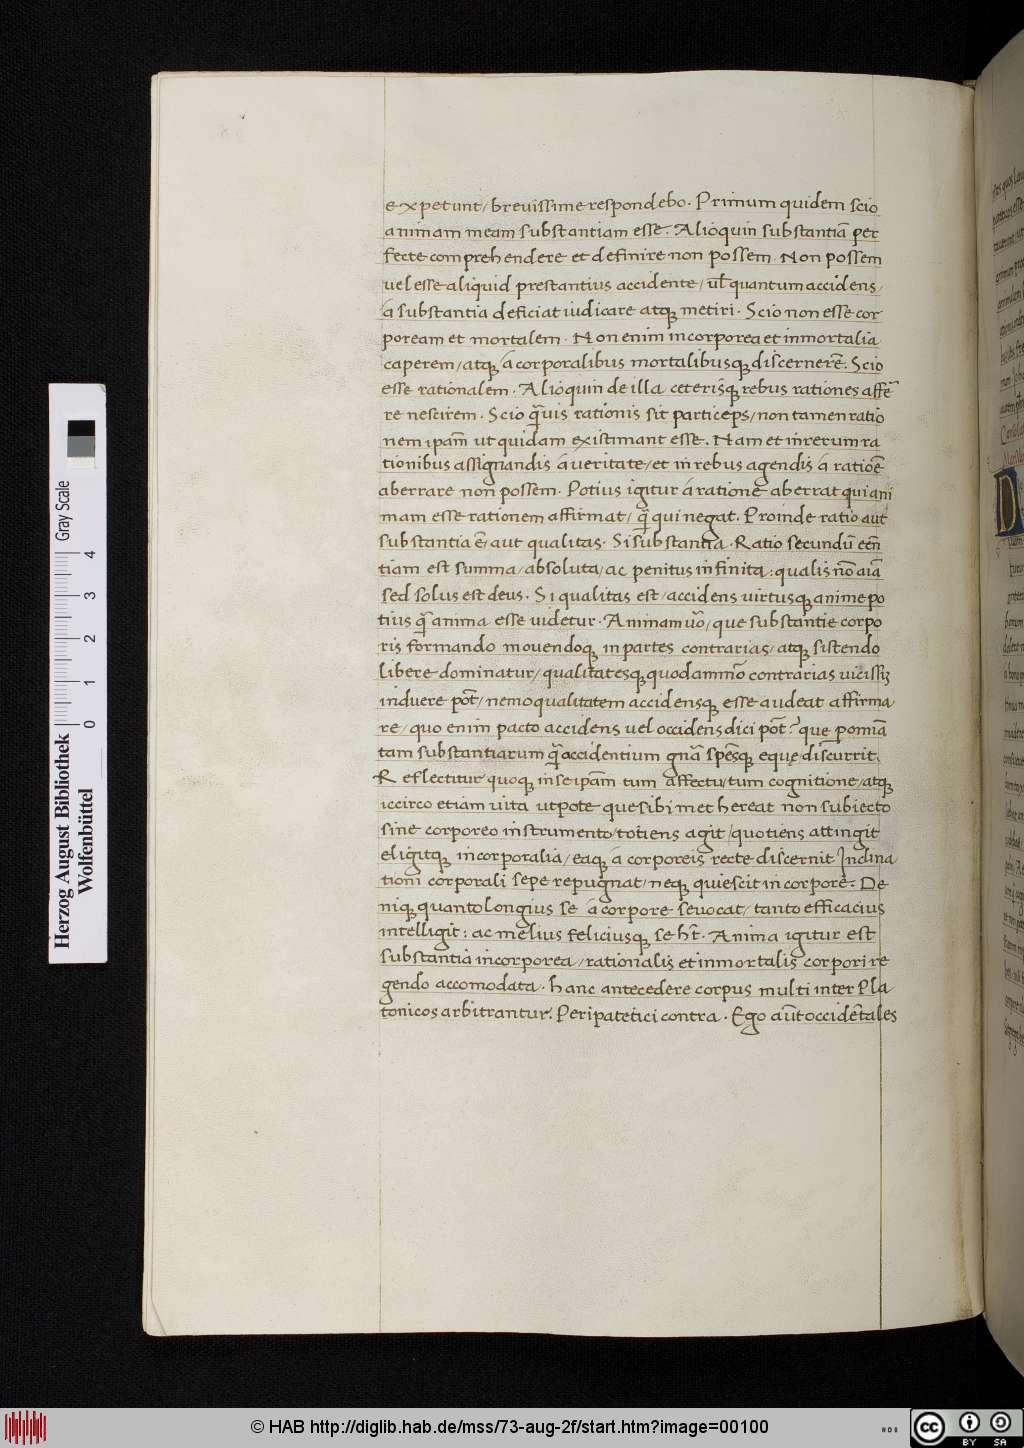 expetunt/ brevissime respondebo. Primum quidem scio
animam meam substantiam esse. Alioquin substantiā per
fecte comprehendere et definire non possem. Non possem
vel esse aliquid prestantius accidente/ vl̄ quantum accidens/
a substantia deficiat iudicare atq; metiri. Scio non esse cor
poream et mortalem. Non enim incorporea et inmortalia
caperem/ atq; a corporalibus mortalibusq; discernerē. Scio
esse rationalem. Alioquin de illa ceterisq; rebus rationes affer̄
re nescirem. Scio q̄uis rationis sit particeps/ non tamen ratio
nem ipam̄ ut quidam existimant esse. Nam et in rerum ra
tionibus assignandis a veritate/ et in rebus agendis a ratiōe
aberrare non possem. Potius igitur a ratione aberrat qui ani
mam esse rationem affirmat/ q̄ qui negat. Proinde ratio aut
substantia ē/ aut qualitas. Si substantia. Ratio secundū eēn
tiam est summa/ absoluta/ ac penitus infinita: qualis nō aīa
sed solus est deus. Si qualitas est/ accidens virtusq; anime po
tius q̄ anima esse videtur. Animam vo̅/ que substantie corpo
ris formando movendoq; in partes contrarias/ atq; sistendo
libere dominatur/ qualitatesq; quodammo̅ contrarias vicissiz
induere pōt/ nemo qualitatem accidensq; esse audeat affirma
re/ quo enim pacto accidens vel occidens dici pōt? que pom̄a
tam substantiarum q̄ accidentium gn̄a spēsq; eque discurrit.
Reflectitur quoq; in se ipam̄ tum affectu/ tum cognitione/ atq;
iccirco etiam vita utpote que sibimet hereat non subiecto
sine corporeo instrumento/ totiens agit/ quotiens attingit
eligitq; incorporalia/ eaq; a corporeis recte discernit Inclina
tioni corporali sepe repugnat/ neq; quiescit in corpore. De
niq; quanto longius se a corpore sevocat/ tanto efficacius
intelligit: ac melius feliciusq; se ht̄. Anima igitur est
substantia incorporea/ rationalis et inmortalis corpori re
gendo accomodata. hanc antecedere corpus multi inter Pla
tonicos arbitrantur. Peripatetici contra. Ego aūt occidētales
Gray Scale
0 1 2 3 4
Herzog August Bibliothek
Wolfenbüttel
© HAB http://diglib.hab.de/mss/73-aug-2f/start.htm?image=00100
cc BY SA